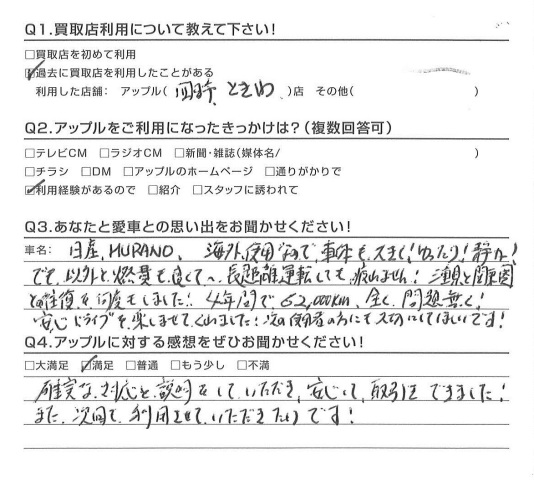 Q1.買取店利用について教えて下さい!
□買取店を初めて利用
☑過去に買取店を利用したことがある
利用した店舗: アップル( 四日市ときわ )店 その他( )
Q2.アップルをご利用になったきっかけは?(複数回答可)
□テレビCM □ラジオCM □新聞・雑誌(媒体名/ )
□チラシ □DM □アップルのホームページ □通りがかりで
☑利用経験があるので □紹介 □スタッフに誘われて
Q3.あなたと愛車との思い出をお聞かせください!
車名: 日産, MURANO, 海外使用なので、車体も大きく!ゆったり!静か!
でも、以外と燃費も良くて、長距離運転しても疲れません!三重と関西圏
の往復を何度もしました!4年間で62,000km、全く問題無く!
安心ドライブを楽しませてくれました!次の使用者の方にも大切にしてほしいです!
Q4.アップルに対する感想をぜひお聞かせください!
□大満足 ☑満足 □普通 □もう少し □不満
確実な対応と説明をしていただき、安心して、取引をできました!
また、次回も利用させていただきたいです!